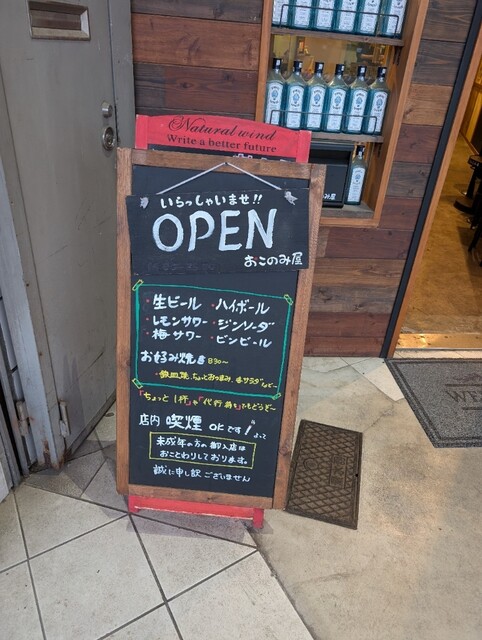 Natural wind
Write a better future
いらっしゃいませ!!
OPEN
おこのみ屋
・生ビール ・ハイボール
・レモンサワー ・ジンソーダ
・梅サワー ・ビンビール
お好み焼き 830〜
「ちょっと1杯」や「代行待ち」でもどうぞ〜
店内 喫煙 OKです!
未成年の方の御入店は
おことわりしております。
誠に申し訳ございません